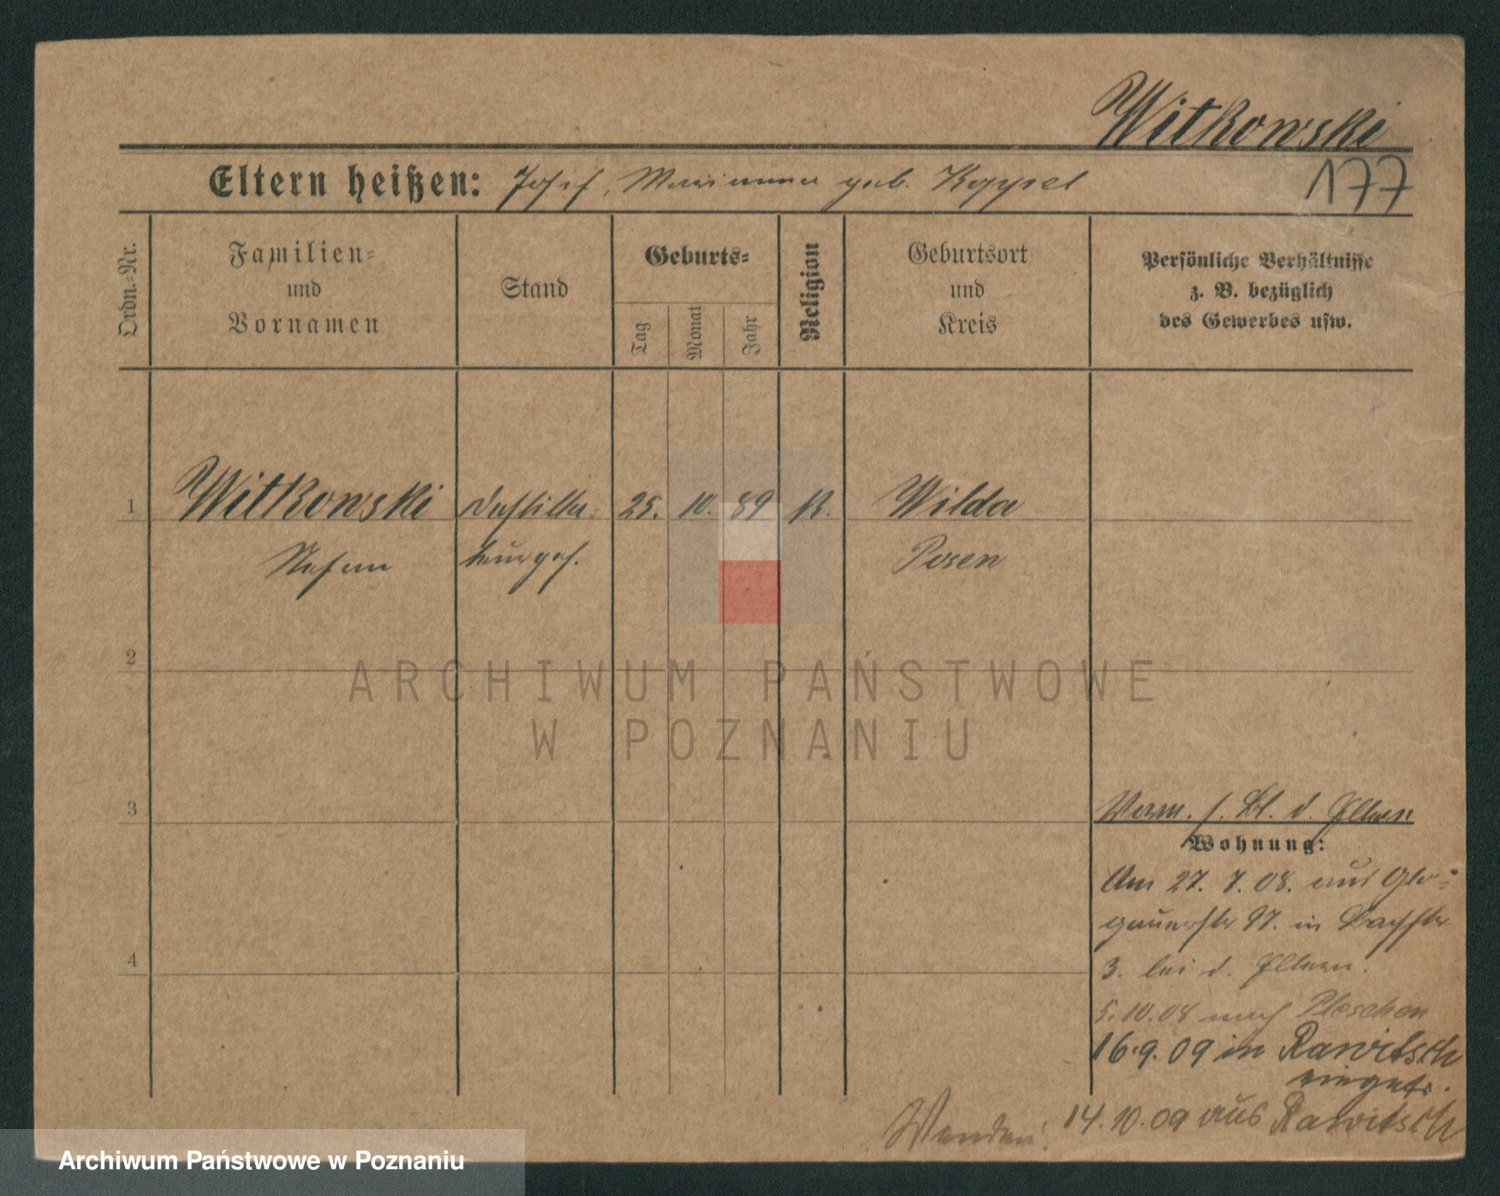 Witkowski
177
Eltern heißen: Josef, Marianna geb.
Ordn.-Nr.
Familien-
und
Vornamen
Stand
Geburts-
Tag
Monat
Jahr
Religion
Geburtsort
und
Kreis
Persönliche Verhältnisse
z. B. bezüglich
des Gewerbes usw.
1 Witkowski Destilla- 25. 10. 89 K. Wilda
Stefan teurgeh. Posen
2
ARCHIWUM PAŃSTWOWE
W POZNANIU
3
Verm. s. Bl. d. Eltern
Wohnung:
Am 27. 7. 08. aus Glo-
gauerstr 97. in Bachstr
4
3. bei d. Eltern.
5.10.08 nach Pleschen
16.9.09 in Rawitsch
eingetr.
14.10.09 aus Rawitsch
Wenden!
Archiwum Państwowe w Poznaniu